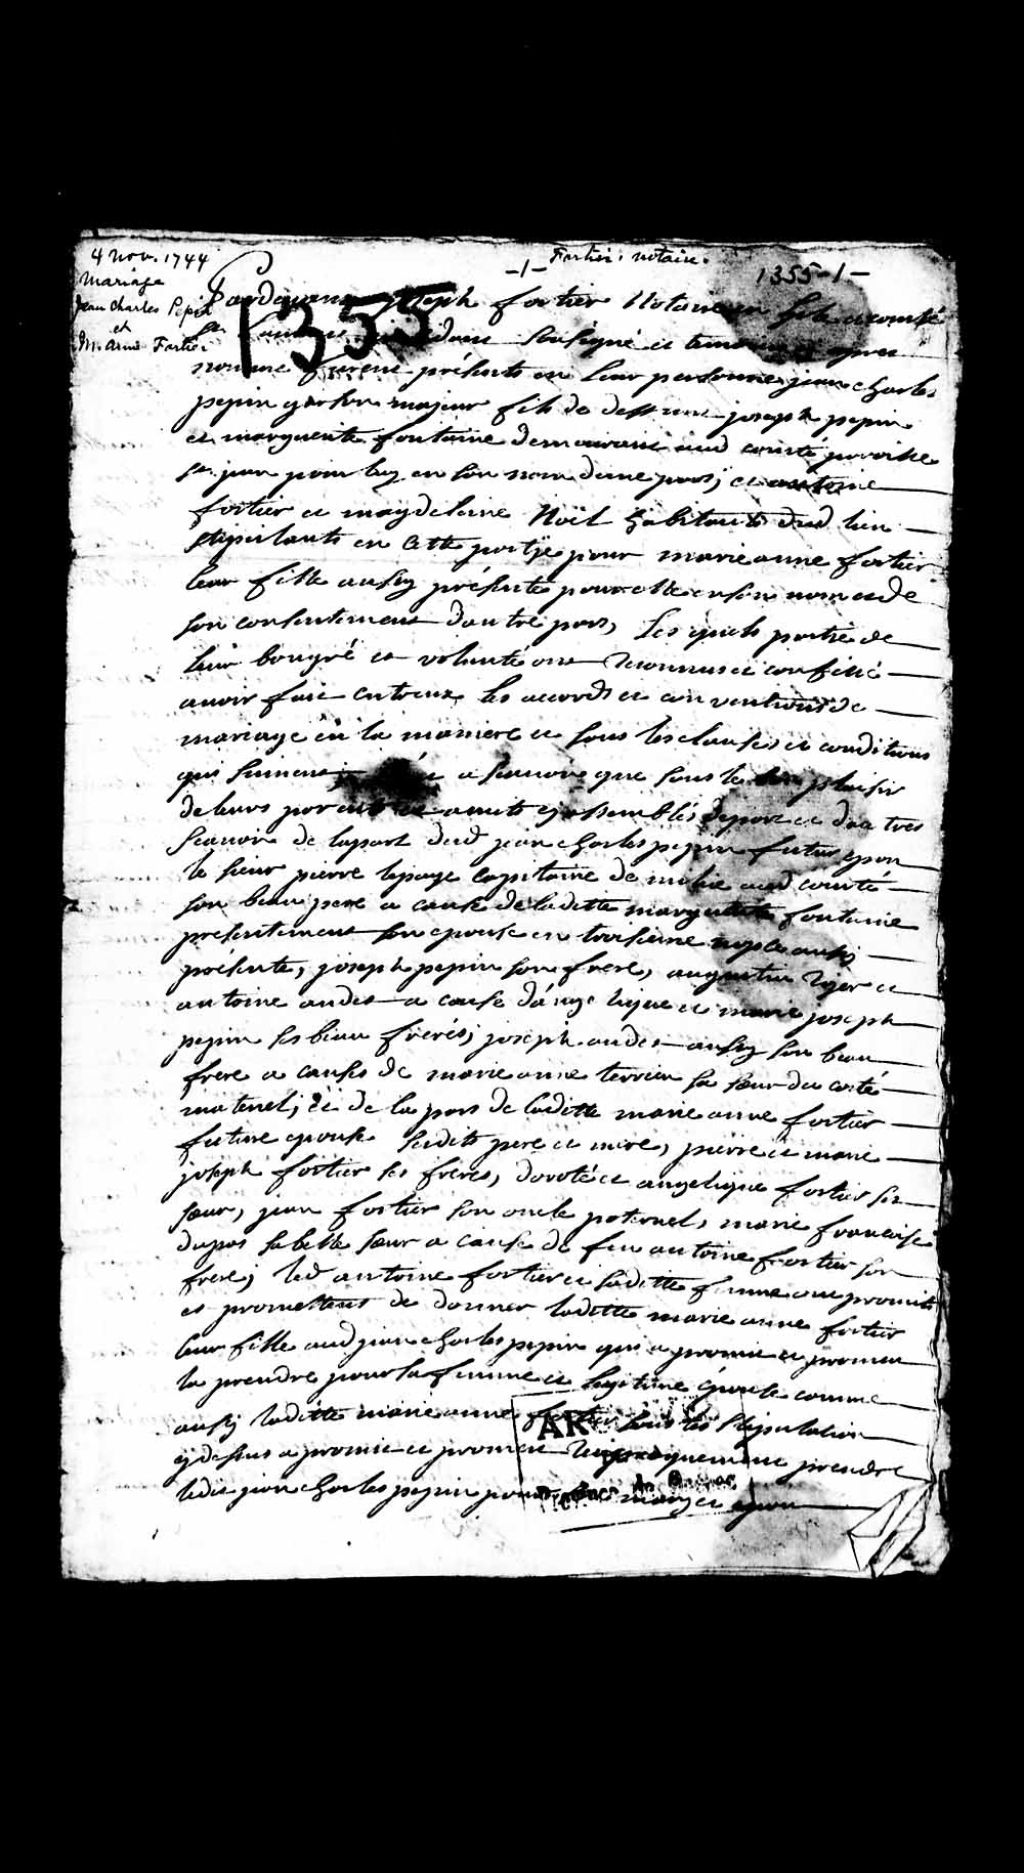 4 nov. 1744
Mariage
Jean Charles Pepin
et
M. Anne Fortier
-1-
Fortier, notaire.
1355-1-
1355
Pardevant joseph fortier Notaire en Isle et comté
St Laurent soussigné et temoins cy apres
nommé furent présents en leur personne jean charles
pepin garson majeur fils de deffunt joseph pepin
et marguerite fontaine demeurant aud comté paroisse
St jean pour luy en son nom dune part, et antoine
fortier et magdelaine Noël habitants dud lieu
stipulants en cette partye pour marie anne fortier
leur fille aussy présente pour elle en son nom et de
son consentement dautre part, Les quels partie de
leur bongré et volonté ont reconnus et confessé
avoir fait entreux les accords et conventions de
mariage en la maniere et sous les clauses et conditions
qui suivent, a scauoir que sous le bon plaisir
de leurs parents et amis cy assemblés de part et dautres
scauoir de la part dud jean charles pepin futur epou
le sieur pierre lepage capitaine de milice aud comté
son beau pere a cause de laditte marguerite fontaine
presentement son epouse en troisieme nopce aussy
présente, joseph pepin son frere, augustin et
antoine audet a cause dángelique et marie joseph
pepin ses beau freres, joseph audet aussy son beau
frere a causes de marie anne terrien sa sœur du costé
maternel, et de la part de laditte marie anne fortier
future epouse sesdits pere et mere, pierre et marie
joseph fortier ses freres, doroté et angelique fortier ses
sœur, jean fortier son oncle paternel, marie francoise
dupas sa belle sœur a cause de feu antoine fortier son
frere, led antoine fortier et saditte femme ont promit
et promettent de donner laditte marie anne fortier
leur fille aud jean charles pepin qui a promis et promet
la prendre pour sa femme et legitime épouse comme
aussy laditte marie anne fortier sous les stipulation
cy dessus a promis et promet reciproquement prendre
ledit jean charles pepin pour son mary et epou